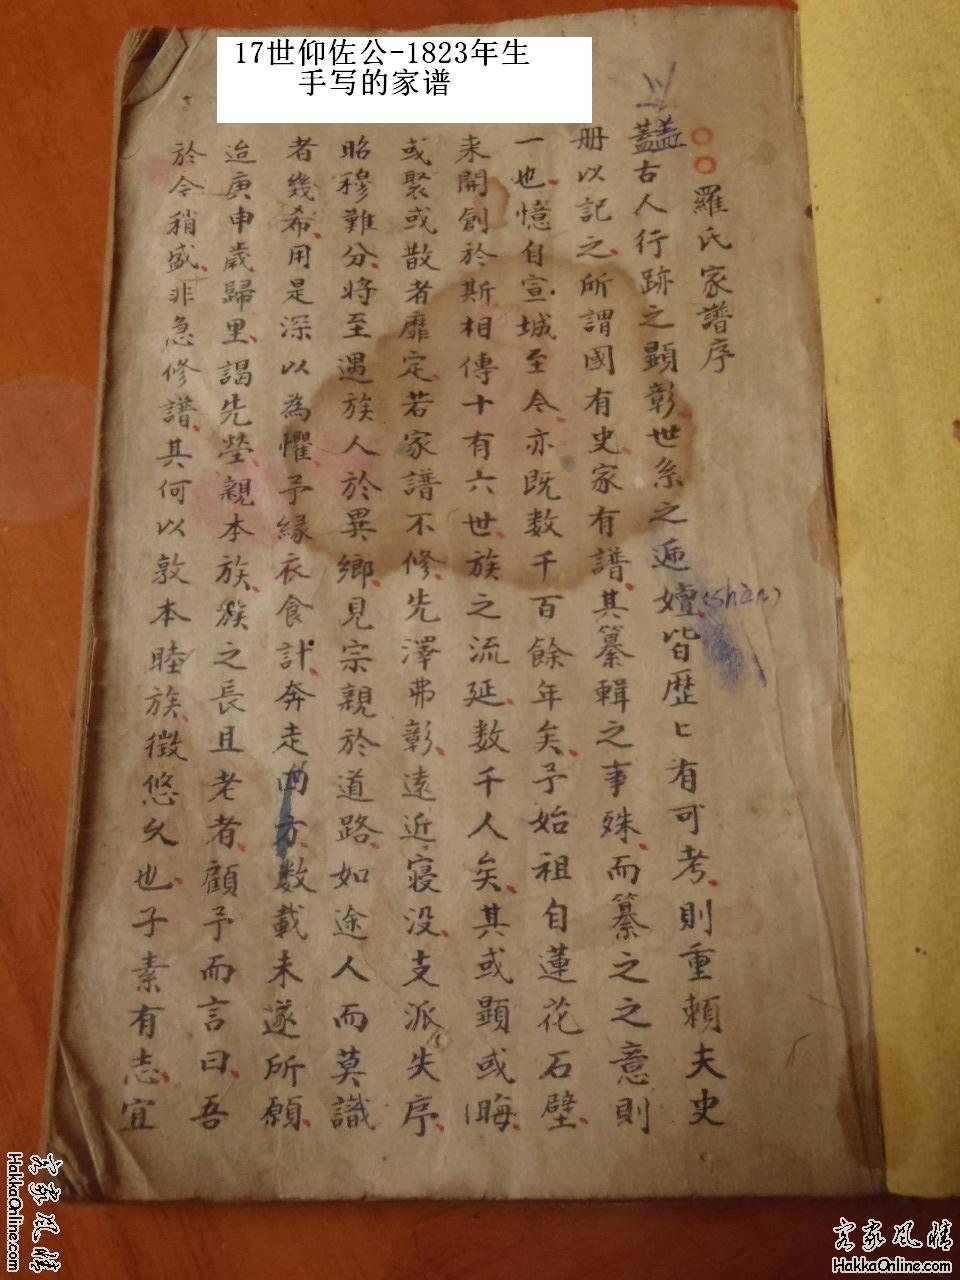 17世仰佐公-1823年生
手写的家谱
羅氏家譜序
蓋古人行跡之顯彰世系之遞嬗皆歷匕有可考則重賴夫史
(shàn)
册以記之所謂國有史家有譜其纂輯之事殊而纂之之意則
一也憶自宣城至今亦既数千百餘年矣予始祖自蓮花石壁
来開創於斯相傳十有六世族之流延数千人矣其或顯或晦
或聚或散者靡定若家譜不修先澤弗彰遠近寝没支派失序
昭穆難分将至遇族人於異鄉見宗親於道路如途人而莫識
者幾希用是深以為懼予緣衣食計奔走四方数載未遂所願
迨庚申歲歸里謁先塋親本族族之長且老者顧予而言曰吾
於今稍盛非急修譜其何以敦本睦族徵悠久也子素有志宜
客家风情
HakkaOnline.com
客家风情
HakkaOnline.com